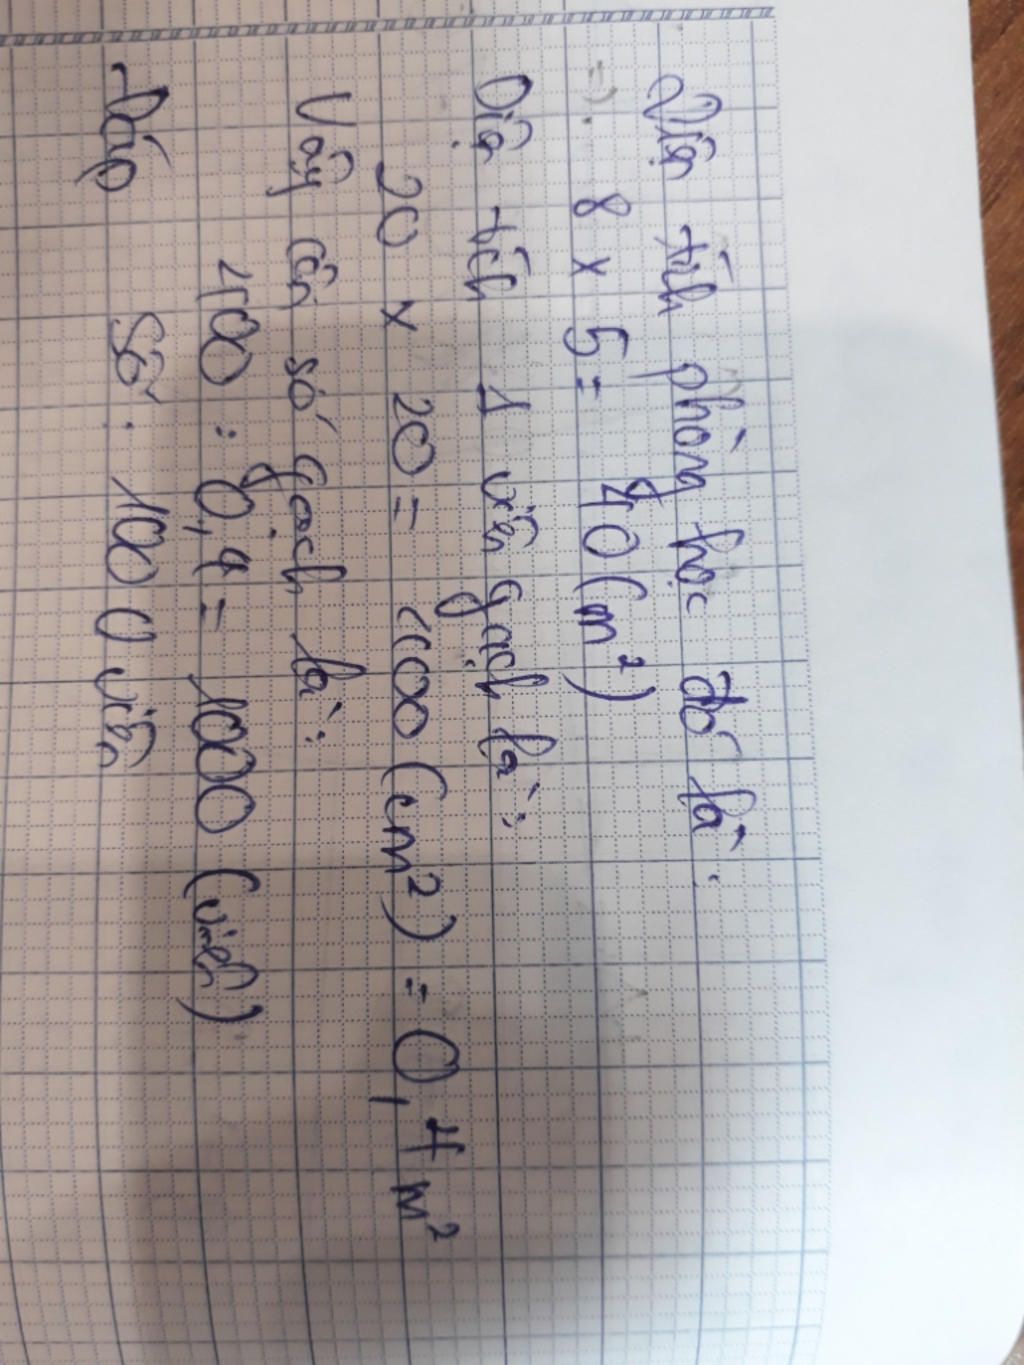 Diện tích phòng học đó là:
8 x 5 = 40 (m²)
Diện tích 1 viên gạch là:
20 x 20 = 400 (cm²) = 0,4 m²
Vậy cần số gạch là:
400 : 0,4 = 1000 (viên)
Đáp số: 1000 viên